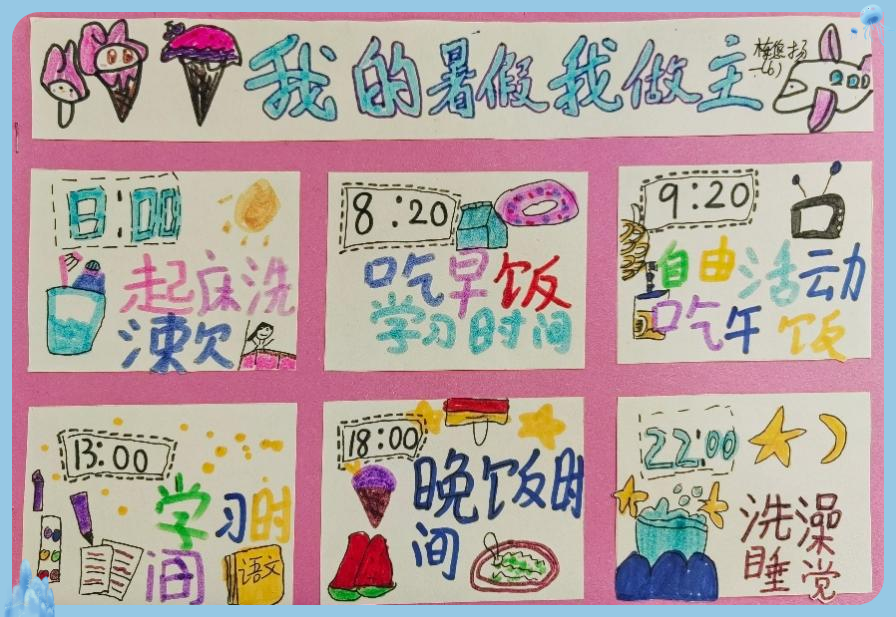 我的暑假我做主
一(6)
8:00
起床洗
漱
8:20
吃早饭
学习时间
9:20
自由活动
吃午饭
13:00
学习时
间
语文
18:00
晚饭时
间
22:00
洗澡
睡觉